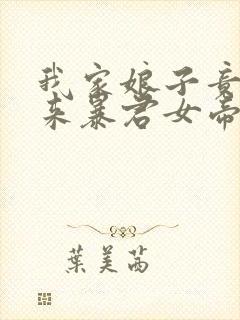 我家娘子竟
来暴君女帝
葉美茜